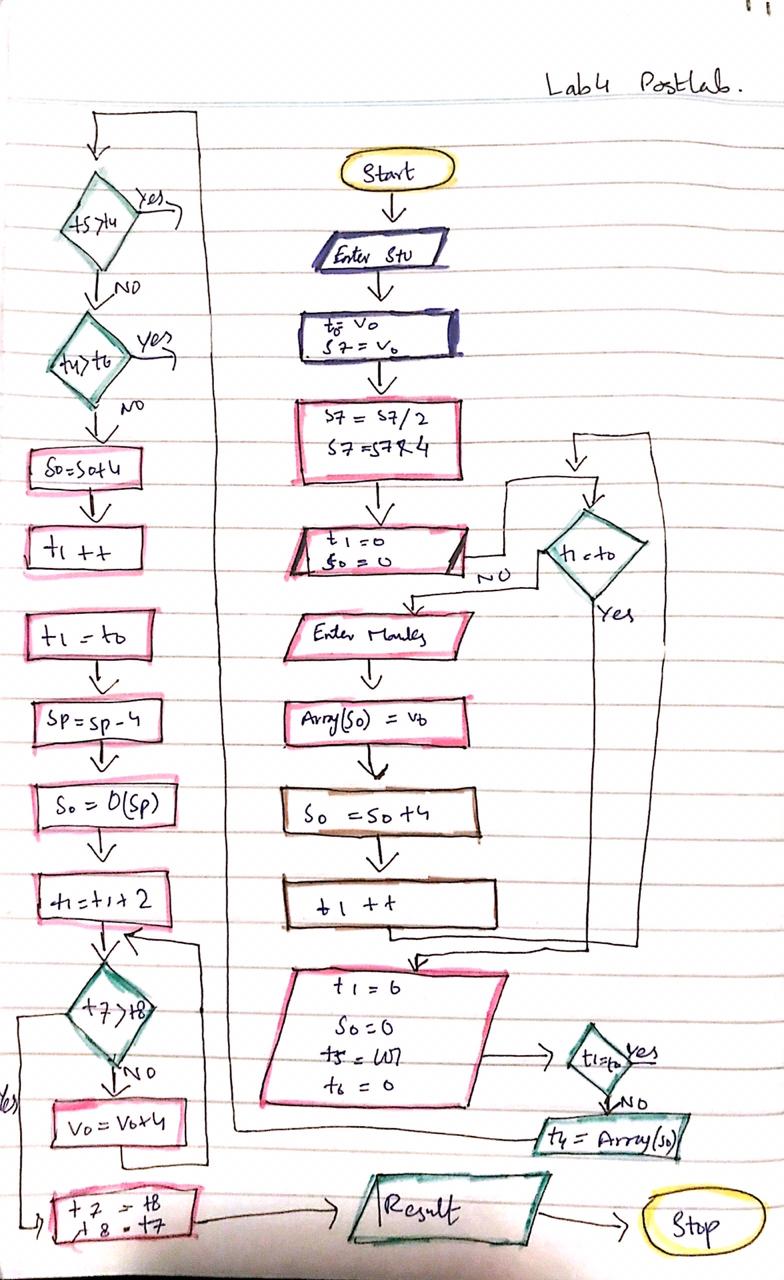 Lab4 Postlab.
Start
Enter Stu
t0= v0
S7 = v0
S7 = S7/2
S7 = S7 * 4
t1 = 0
S0 = 0
t1 = t0
NO
Yes
Enter Marks
Array(S0) = v0
S0 = S0 + 4
t1 ++
t1 = 0
S0 = 0
t5 =
t6 = 0
t1 = t0
Yes
NO
t4 = Array(S0)
t5 > t4
Yes
NO
t4 > t6
Yes
NO
S0 = S0 + 4
t1 ++
t1 = t0
Sp = Sp - 4
S0 = 0(Sp)
t1 = t1 + 2
t7 > t8
Yes
NO
V0 = V0 + 4
t7 = t8
t8 = t7
Result
Stop